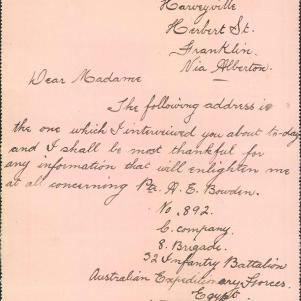 Harveyville
Herbert St.
Franklin.
Via Alberton.
Dear Madame
The following address is
the one which I interviewed you about to-day
and I shall be most thankful for
any information that will enlighten me
at all concerning Pte. A. E. Bowden.
No. 892.
C. company.
8. Brigade.
32 Infantry Battalion
Australian Expeditionary Forces.
Egypt